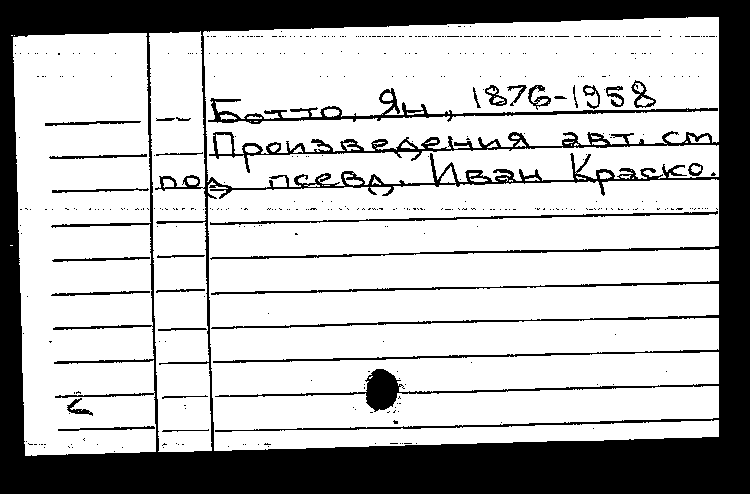 Ботто, Ян, 1876-1958
Произведения авт. см
под псевд. Иван Краско.